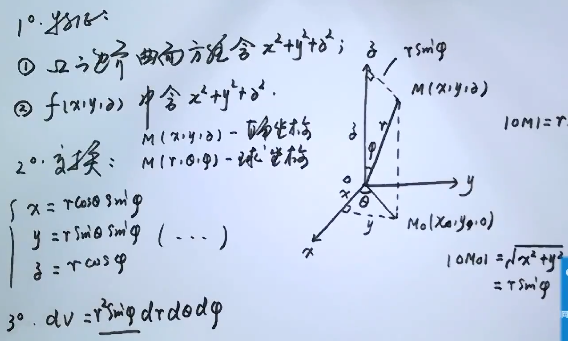 1°. 特征:
① Ω之边界曲面方程含 x²+y²+z²;
② f(x,y,z) 中含 x²+y²+z².
2°. 变换:
M(x,y,z) - 直角坐标
M(r,θ,φ) - 球坐标
x = rcosθ sinφ
y = rsinθ sinφ (...)
z = rcosφ
3°. dv = r²sinφ dr dθ dφ
z
r sinφ
M(x,y,z)
z
r
φ
o
x
θ
y
y
x
M₀(x₀,y₀,0)
|OM| = r.
|OM₀| = √x²+y²
= r sinφ